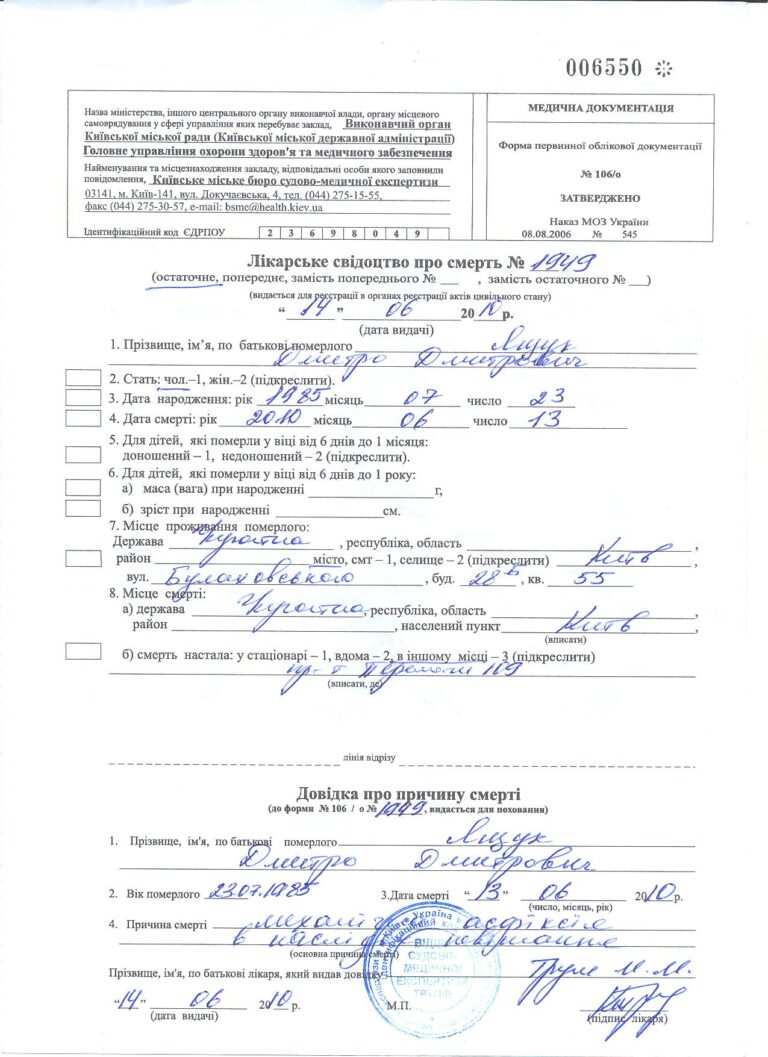 006550 ✲
Назва міністерства, іншого центрального органу виконавчої влади, органу місцевого
самоврядування у сфері управління яких перебуває заклад, Виконавчий орган
Київської міської ради (Київської міської державної адміністрації)
Головне управління охорони здоров'я та медичного забезпечення
Найменування та місцезнаходження закладу, відповідальні особи якого заповнили
повідомлення, Київське міське бюро судово-медичної експертизи
03141, м. Київ-141, вул. Докучаєвська, 4, тел. (044) 275-15-55,
факс (044) 275-30-57, e-mail: bsme@health.kiev.ua
Ідентифікаційний код ЄДРПОУ 2 3 6 9 8 0 4 9
МЕДИЧНА ДОКУМЕНТАЦІЯ
Форма первинної облікової документації
№ 106/о
ЗАТВЕРДЖЕНО
Наказ МОЗ України
08.08.2006 № 545
Лікарське свідоцтво про смерть № 1949
(остаточне, попереднє, замість попереднього № ___ , замість остаточного № ___)
(видається для реєстрації в органах реєстрації актів цивільного стану)
“ 14 ” 06 2010 р.
(дата видачі)
1. Прізвище, ім’я, по батькові померлого Ящук
Дмитро Дмитрович
2. Стать: чол.–1, жін.–2 (підкреслити).
3. Дата народження: рік 1985 місяць 07 число 23
4. Дата смерті: рік 2010 місяць 06 число 13
5. Для дітей, які померли у віці від 6 днів до 1 місяця:
доношений – 1, недоношений – 2 (підкреслити).
6. Для дітей, які померли у віці від 6 днів до 1 року:
а) маса (вага) при народженні ____________ г,
б) зріст при народженні ____________ см.
7. Місце проживання померлого:
Держава Україна , республіка, область ____________ ,
район ____________ місто, смт – 1, селище – 2 (підкреслити) Київ ,
вул. Булаховського , буд. 28 Б , кв. 55
8. Місце смерті:
а) держава Україна, республіка, область ____________ ,
район ____________ , населений пункт Київ ,
(вписати)
б) смерть настала: у стаціонарі – 1, вдома – 2, в іншому місці – 3 (підкреслити)
пр-т Перемоги 169
(вписати, де)
лінія відрізу
Довідка про причину смерті
(до форми № 106 / о № 1949, видається для поховання)
1. Прізвище, ім'я, по батькові померлого Ящук
Дмитро Дмитрович
2. Вік померлого 23.07.1985 3.Дата смерті “ 13 ” 06 2010 р.
(число, місяць, рік)
4. Причина смерті асфіксія
(основна причина смерті)
Прізвище, ім'я, по батькові лікаря, який видав довідку М. М.
“14” 06 2010 р. М.П.
(дата видачі) (підпис лікаря)
Україна
СУДОВО-
МЕДИЧНОЇ
ЕКСПЕРТИЗИ
ТРУПІВ